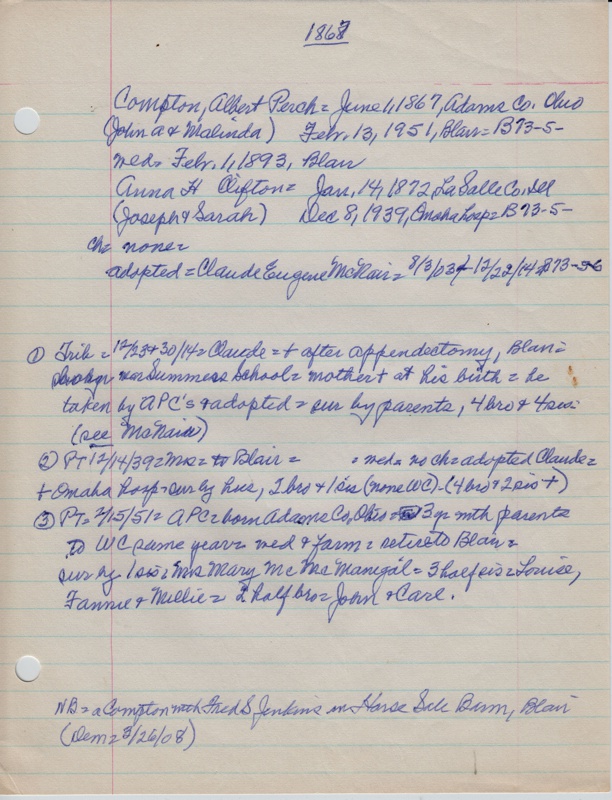 1867
Compton, Albert Perch = June 1, 1867, Adams Co. Ohio
(John A & Malinda) Febr. 13, 1951, Blair = B73-5-
wed = Febr. 1, 1893, Blair
Anna H Clifton = Jan. 14, 1872, LaSalle Co. Ill
(Joseph & Sarah) Dec 8, 1939, Omaha hosp = B73-5-
ch = none =
adopted = Claude Eugene McNair = 8/3/03 + 12/22/14 = B73-5-6
① Trib = 12/23 & 30/14 = Claude = + after appendectomy, Blair =
was Summers School = mother + at his birth = he
taken by APC's & adopted = sur by parents, 4 bro & 4 sis =
(see McNair)
② PT 12/14/39 = Mrs = to Blair = = wed = no ch = adopted Claude =
+ Omaha hosp = sur by hus, 2 bro & 1 sis (none WC) - (4 bro & 2 sis +)
③ PT = 2/15/51 = APC = born Adams Co, Ohio = 3 yr with parents
to WC same year = wed & farm = retire to Blair =
sur by 1 sis = Mrs Mary Mc Mc Manegal = 3 half sis = Louise,
Fannie & Millie = 2 half bro = John & Carl.
NB = a Compton with Fred S Jenkins in Horse Sale Barn, Blair
(Dem = 3/26/08)